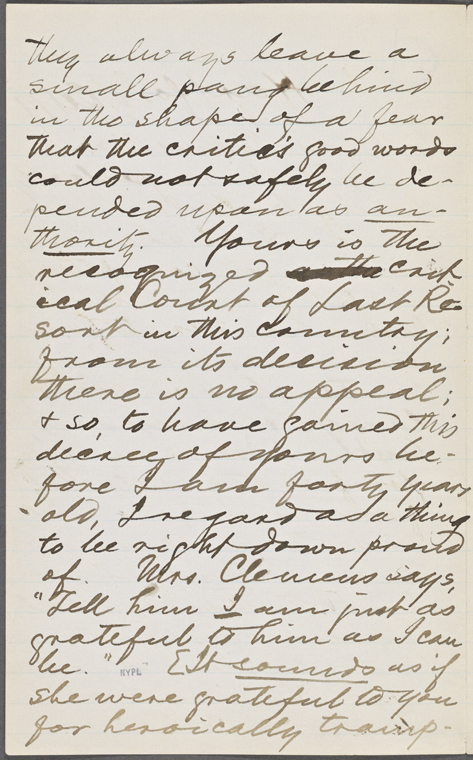 they always leave a
small pang behind
in the shape of a fear
that the critic's good words
could not safely be de-
pended upon as au-
thority. Yours is the
recognized crit-
ical Court of Last Re-
sort in this country;
from its decision
there is no appeal;
& so, to have gained this
decree of yours be-
fore I am forty years
old, I regard as a thing
to be right down proud
of. Mrs. Clemens says,
"Tell him I am just as
grateful to him as I can
be." [It sounds as if
she were grateful to you
for heroically tramp-
NYPL